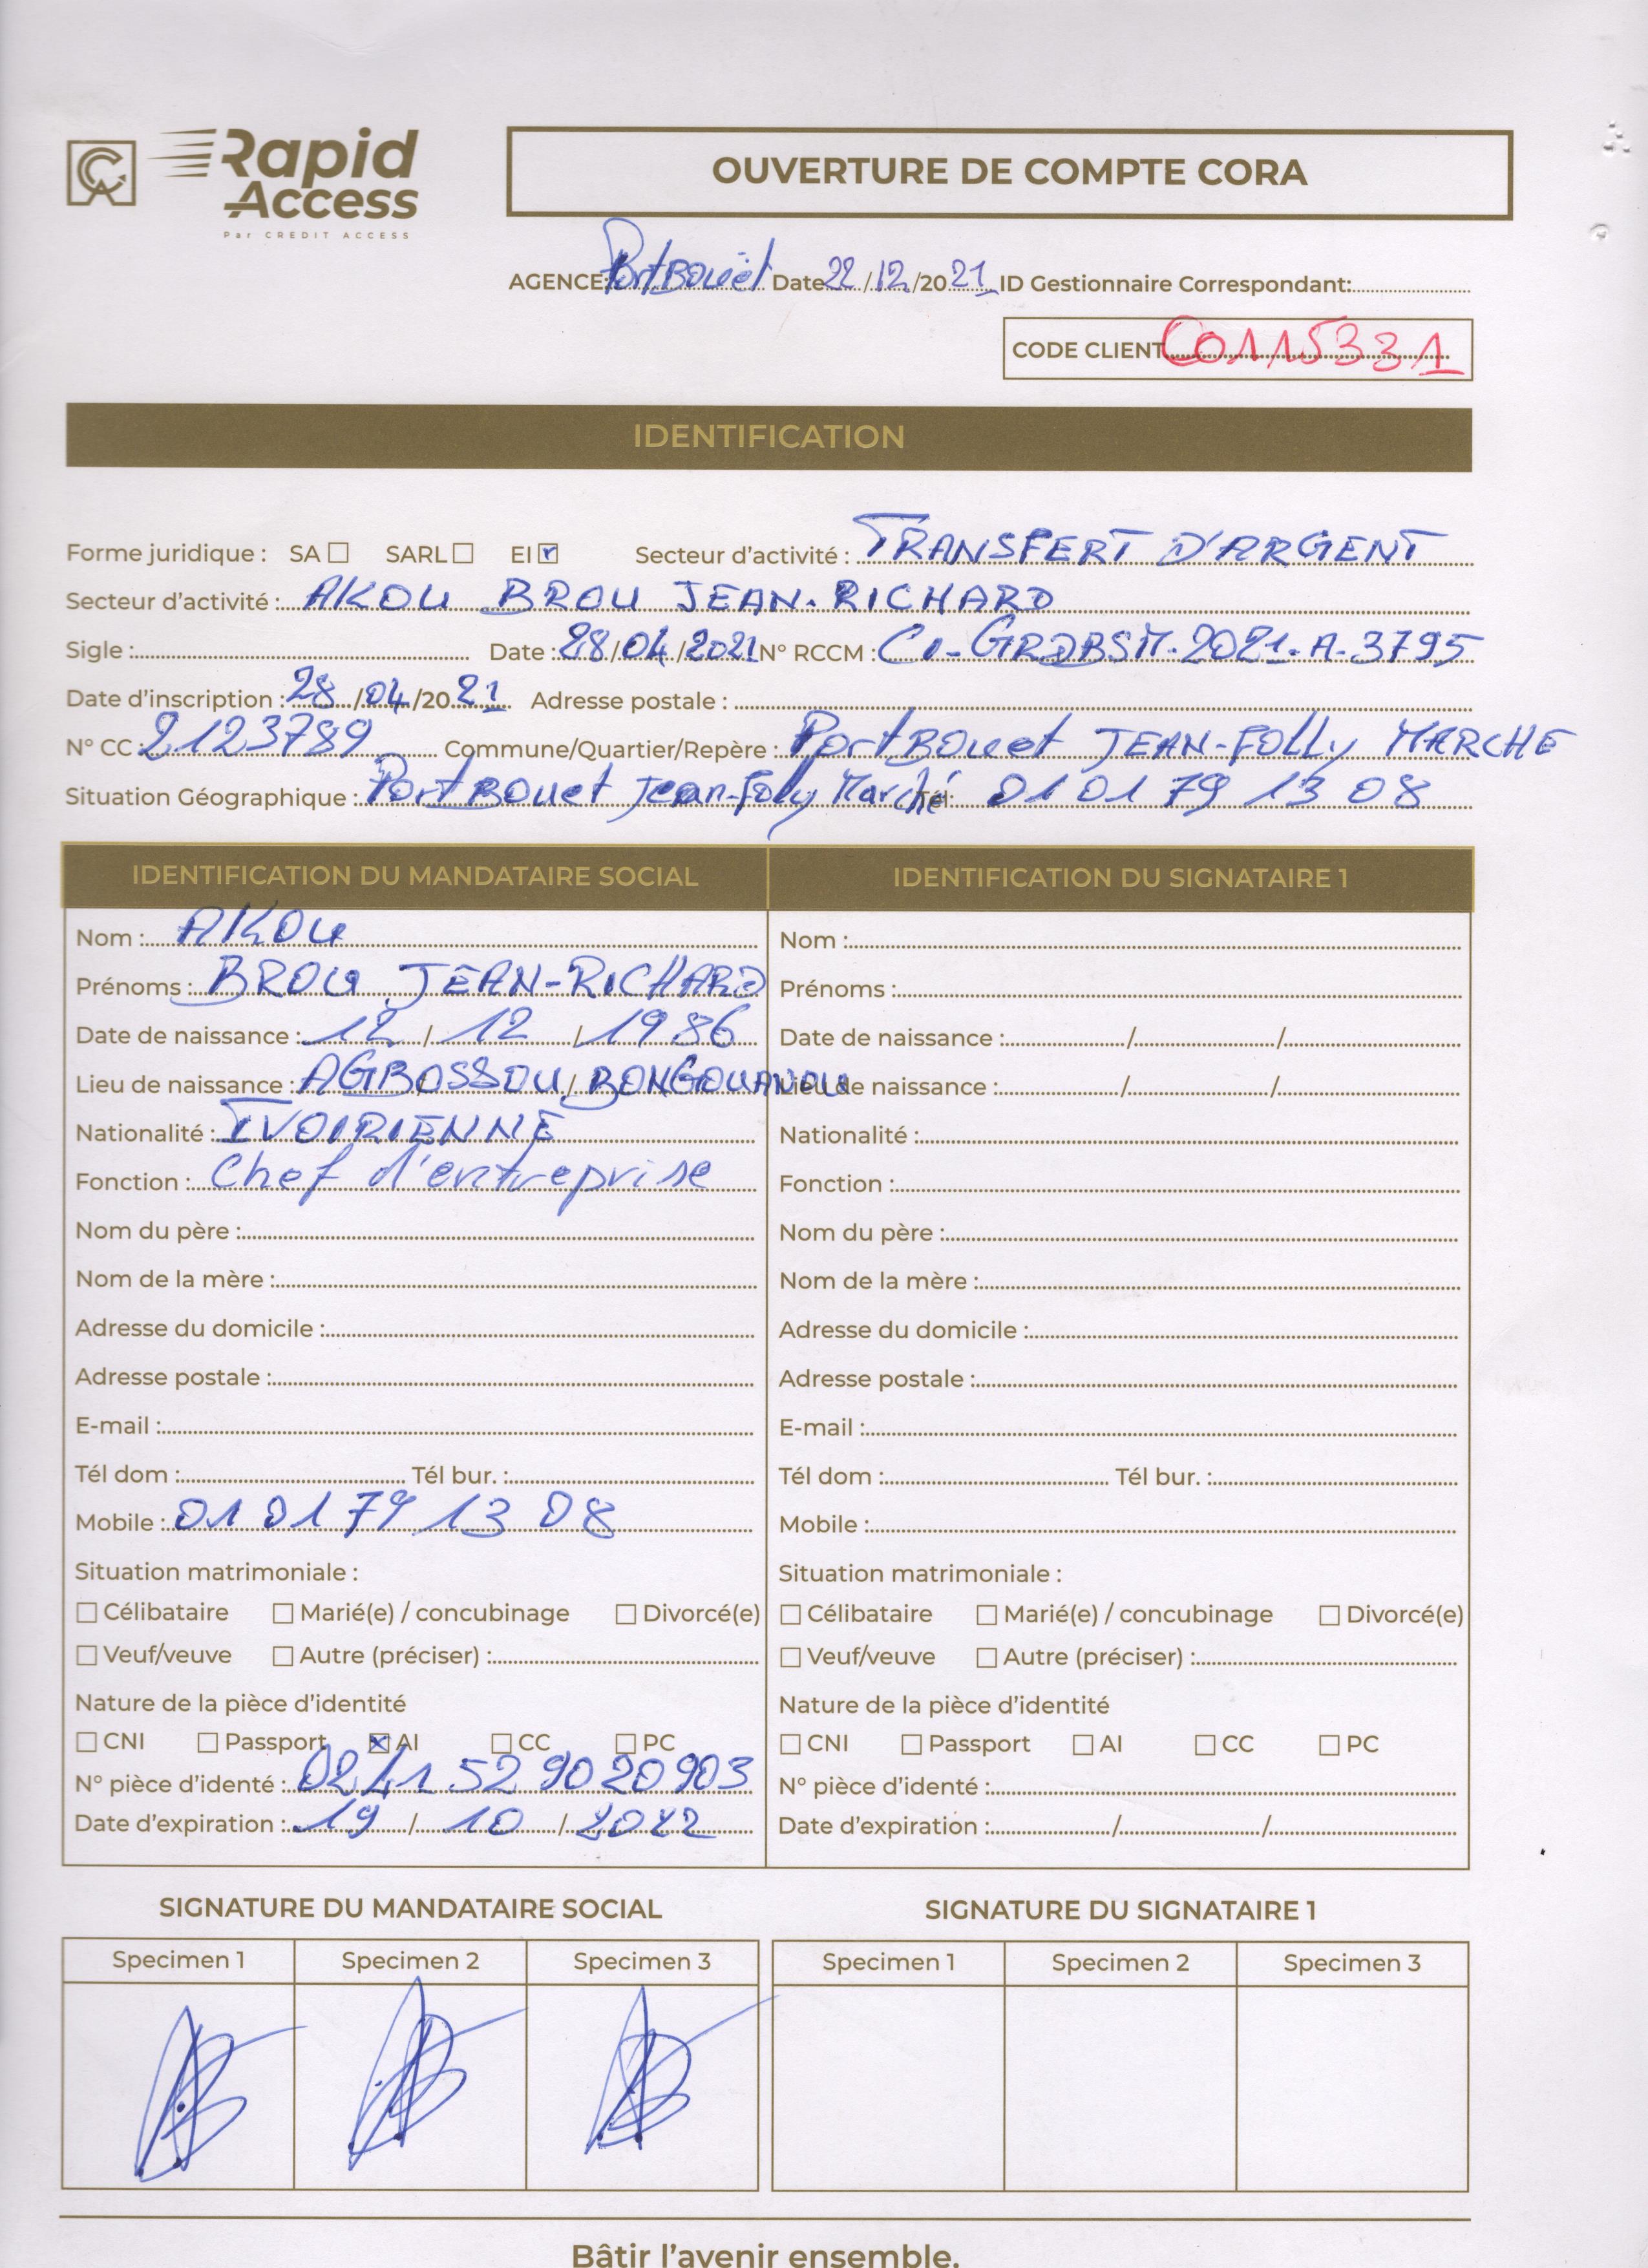 Rapid
Access
Par CREDIT ACCESS
OUVERTURE DE COMPTE CORA
AGENCE: PortBouët Date 22/12/2021 ID Gestionnaire Correspondant:
CODE CLIENT C0115331
IDENTIFICATION
Forme juridique : SA ☐ SARL ☐ EI ☑ Secteur d'activité : TRANSFERT D'ARGENT
Secteur d'activité : AKOU BROU JEAN-RICHARD
Sigle : Date : 28/04/2021 N° RCCM : CI-GRDBSM-2021-A-3795
Date d'inscription : 28/04/2021 Adresse postale :
N° CC 2123789 Commune/Quartier/Repère : PortBouet JEAN-FOLLY MARCHE
Situation Géographique : PortBouet Jean-Folly Marché Tél: 01 01 79 13 08
IDENTIFICATION DU MANDATAIRE SOCIAL
Nom : AKOU
Prénoms : BROU JEAN-RICHARD
Date de naissance : 12/12/1986
Lieu de naissance : AGBOSSOU/BONGOUANOU
Nationalité : IVOIRIENNE
Fonction : Chef d'entreprise
Nom du père :
Nom de la mère :
Adresse du domicile :
Adresse postale :
E-mail :
Tél dom : Tél bur. :
Mobile : 01 01 79 13 08
Situation matrimoniale :
☐ Célibataire ☐ Marié(e) / concubinage ☐ Divorcé(e)
☐ Veuf/veuve ☐ Autre (préciser) :
Nature de la pièce d'identité
☐ CNI ☐ Passport ☒ AI ☐ CC ☐ PC
N° pièce d'identé : 52 90 20 903
Date d'expiration : 19/10/2022
IDENTIFICATION DU SIGNATAIRE 1
Nom :
Prénoms :
Date de naissance : / /
Lieu de naissance : / /
Nationalité :
Fonction :
Nom du père :
Nom de la mère :
Adresse du domicile :
Adresse postale :
E-mail :
Tél dom : Tél bur. :
Mobile :
Situation matrimoniale :
☐ Célibataire ☐ Marié(e) / concubinage ☐ Divorcé(e)
☐ Veuf/veuve ☐ Autre (préciser) :
Nature de la pièce d'identité
☐ CNI ☐ Passport ☐ AI ☐ CC ☐ PC
N° pièce d'identé :
Date d'expiration : / /
SIGNATURE DU MANDATAIRE SOCIAL
Specimen 1 Specimen 2 Specimen 3
SIGNATURE DU SIGNATAIRE 1
Specimen 1 Specimen 2 Specimen 3
Bâtir l'avenir ensemble.